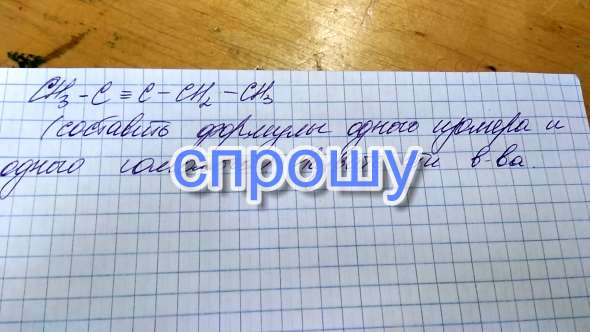 CH₃ - C ≡ C - CH₂ - CH₃
(составить формулы одного изомера и
одного в-ва.
спрошу